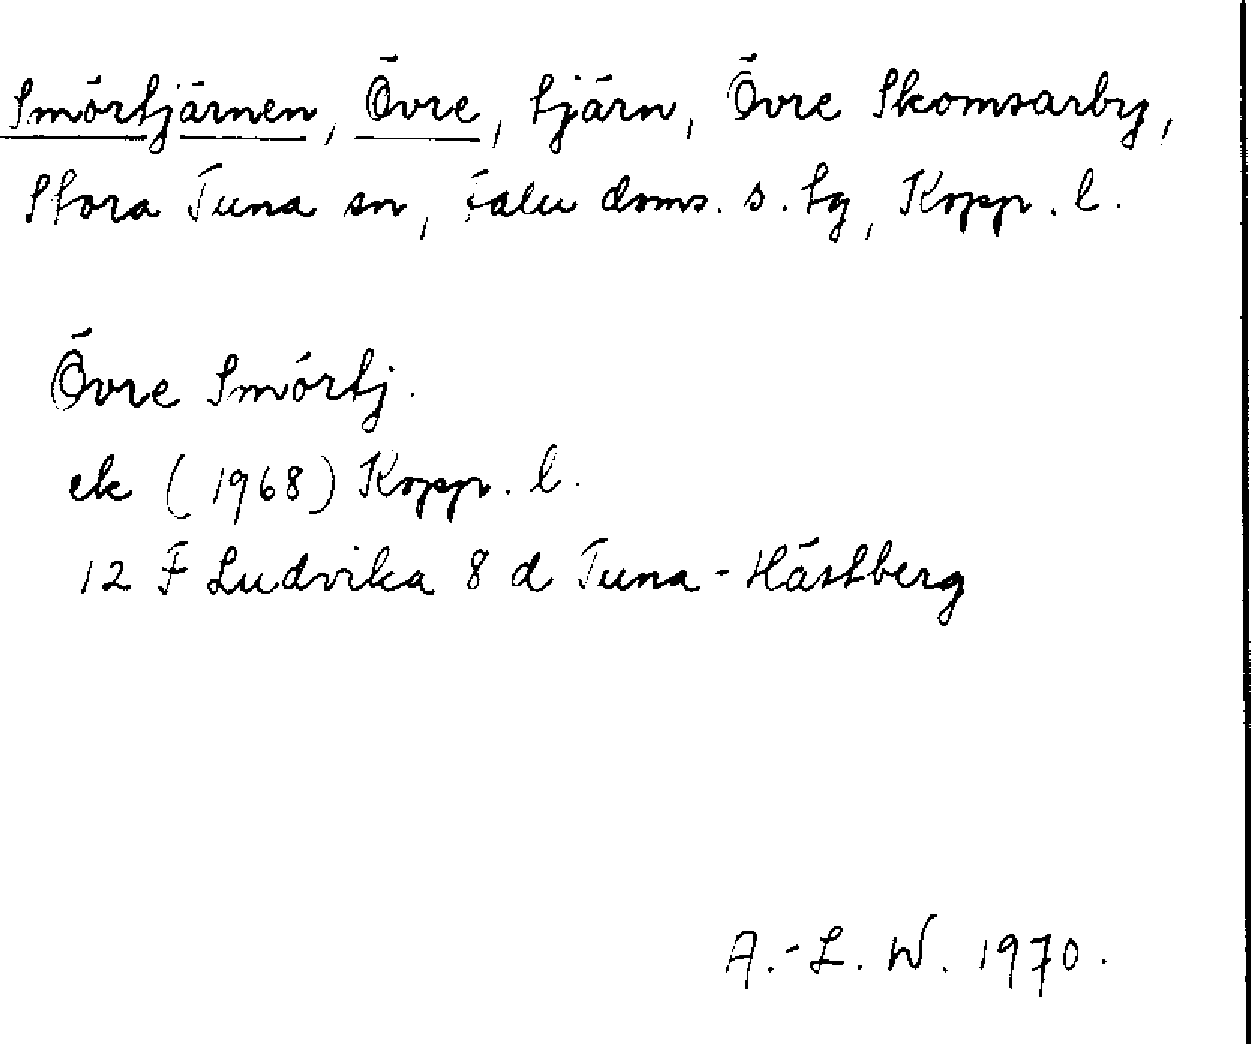 Smörtjärnen, Övre, tjärn, Övre Skomsarby,
Stora Tuna sn, Falu doms. s. tg, Kopp. l.
Övre Smörtj.
ek (1968) Kopp. l.
12 F Ludvika 8 d Tuna-Hästberg
A.-L. W. 1970.